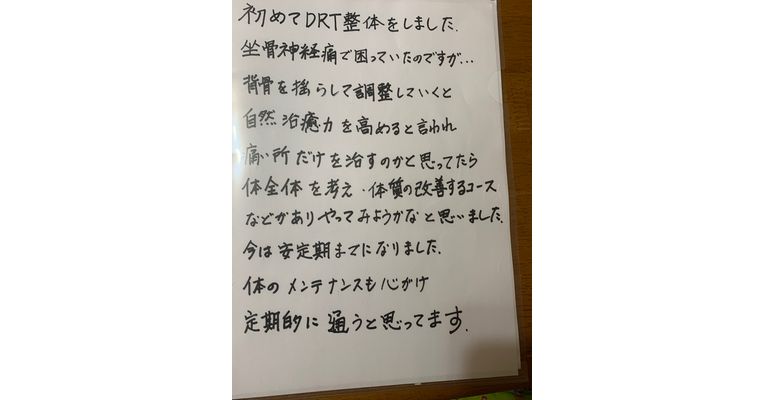 初めてDRT整体をしました.
坐骨神経痛で困っていたのですが...
背骨を揺らして調整していくと
自然治癒力を高めると言われ
痛い所だけを治すのかと思ってたら
体全体を考え・体質の改善するコース
などがありやってみようかなと思いました.
今は安定期までになりました.
体のメンテナンスも心がけ
定期的に通うと思ってます.